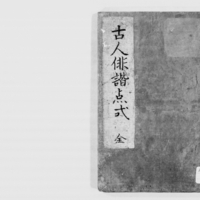 古人俳諧点式 全